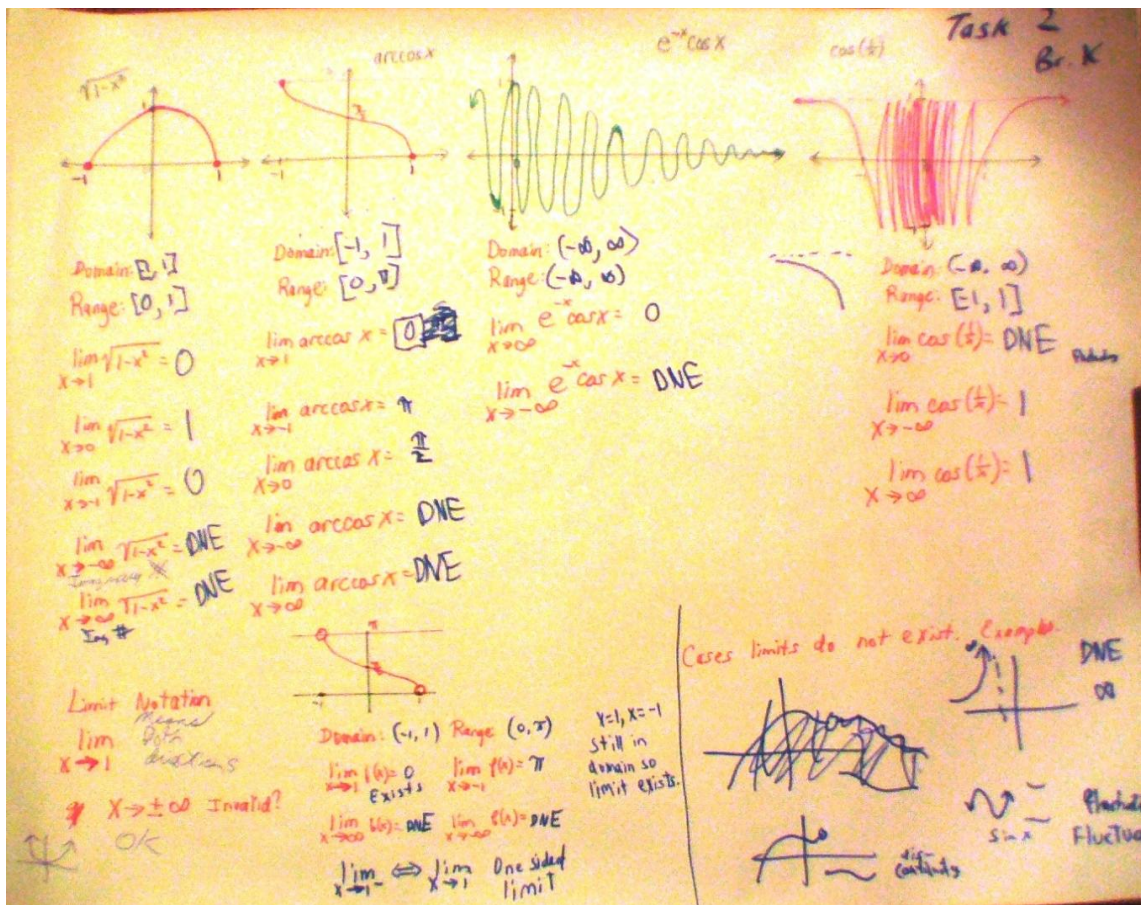 Task 2
Br. K
√1-x²
1
-1
1
Domain: [-1, 1]
Range: [0, 1]
lim x→1 √1-x² = 0
lim x→0 √1-x² = 1
lim x→-1 √1-x² = 0
lim x→-∞ √1-x² = DNE
Imaginary #
lim x→∞ √1-x² = DNE
Im #
arccos x
π/2
-1
1
Domain: [-1, 1]
Range: [0, π]
lim x→1 arccos x = 0
lim x→-1 arccos x = π
lim x→0 arccos x = π/2
lim x→-∞ arccos x = DNE
lim x→∞ arccos x = DNE
e⁻ˣ cos x
1
Domain: (-∞, ∞)
Range: (-∞, ∞)
lim x→∞ e⁻ˣ cos x = 0
lim x→-∞ e⁻ˣ cos x = DNE
cos(1/x)
Domain: (-∞, ∞)
Range: [-1, 1]
lim x→0 cos(1/x) = DNE
lim x→-∞ cos(1/x) = 1
lim x→∞ cos(1/x) = 1
Limit Notation
lim x→1
Means
Both
directions
X→±∞ Invalid?
OK
π
π/2
-1
1
Domain: (-1, 1) Range (0, π)
lim x→1 f(x) = 0
Exists
lim x→-1 f(x) = π
lim x→∞ f(x) = DNE
lim x→-∞ f(x) = DNE
lim x→1⁻ ⇔ lim x→1 One sided
limit
x=1, x=-1
still in
domain so
limit exists.
Cases limits do not exist. Examples.
DNE
∞
sin x
Fluctua
dis-
continuity